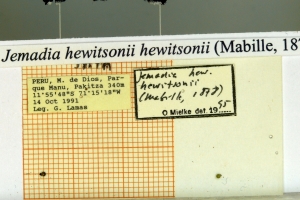 Jemadia hewitsonii hewitsonii (Mabille, 187
PERU, M. de Dios, Par-
que Manu, Pakitza 340m
11°55'48"S 71°15'18"W
14 Oct 1991
Leg. G. Lamas
Jemadia hew.
hewitsonii
(Mabille, 1878)
O Mielke det. 1995